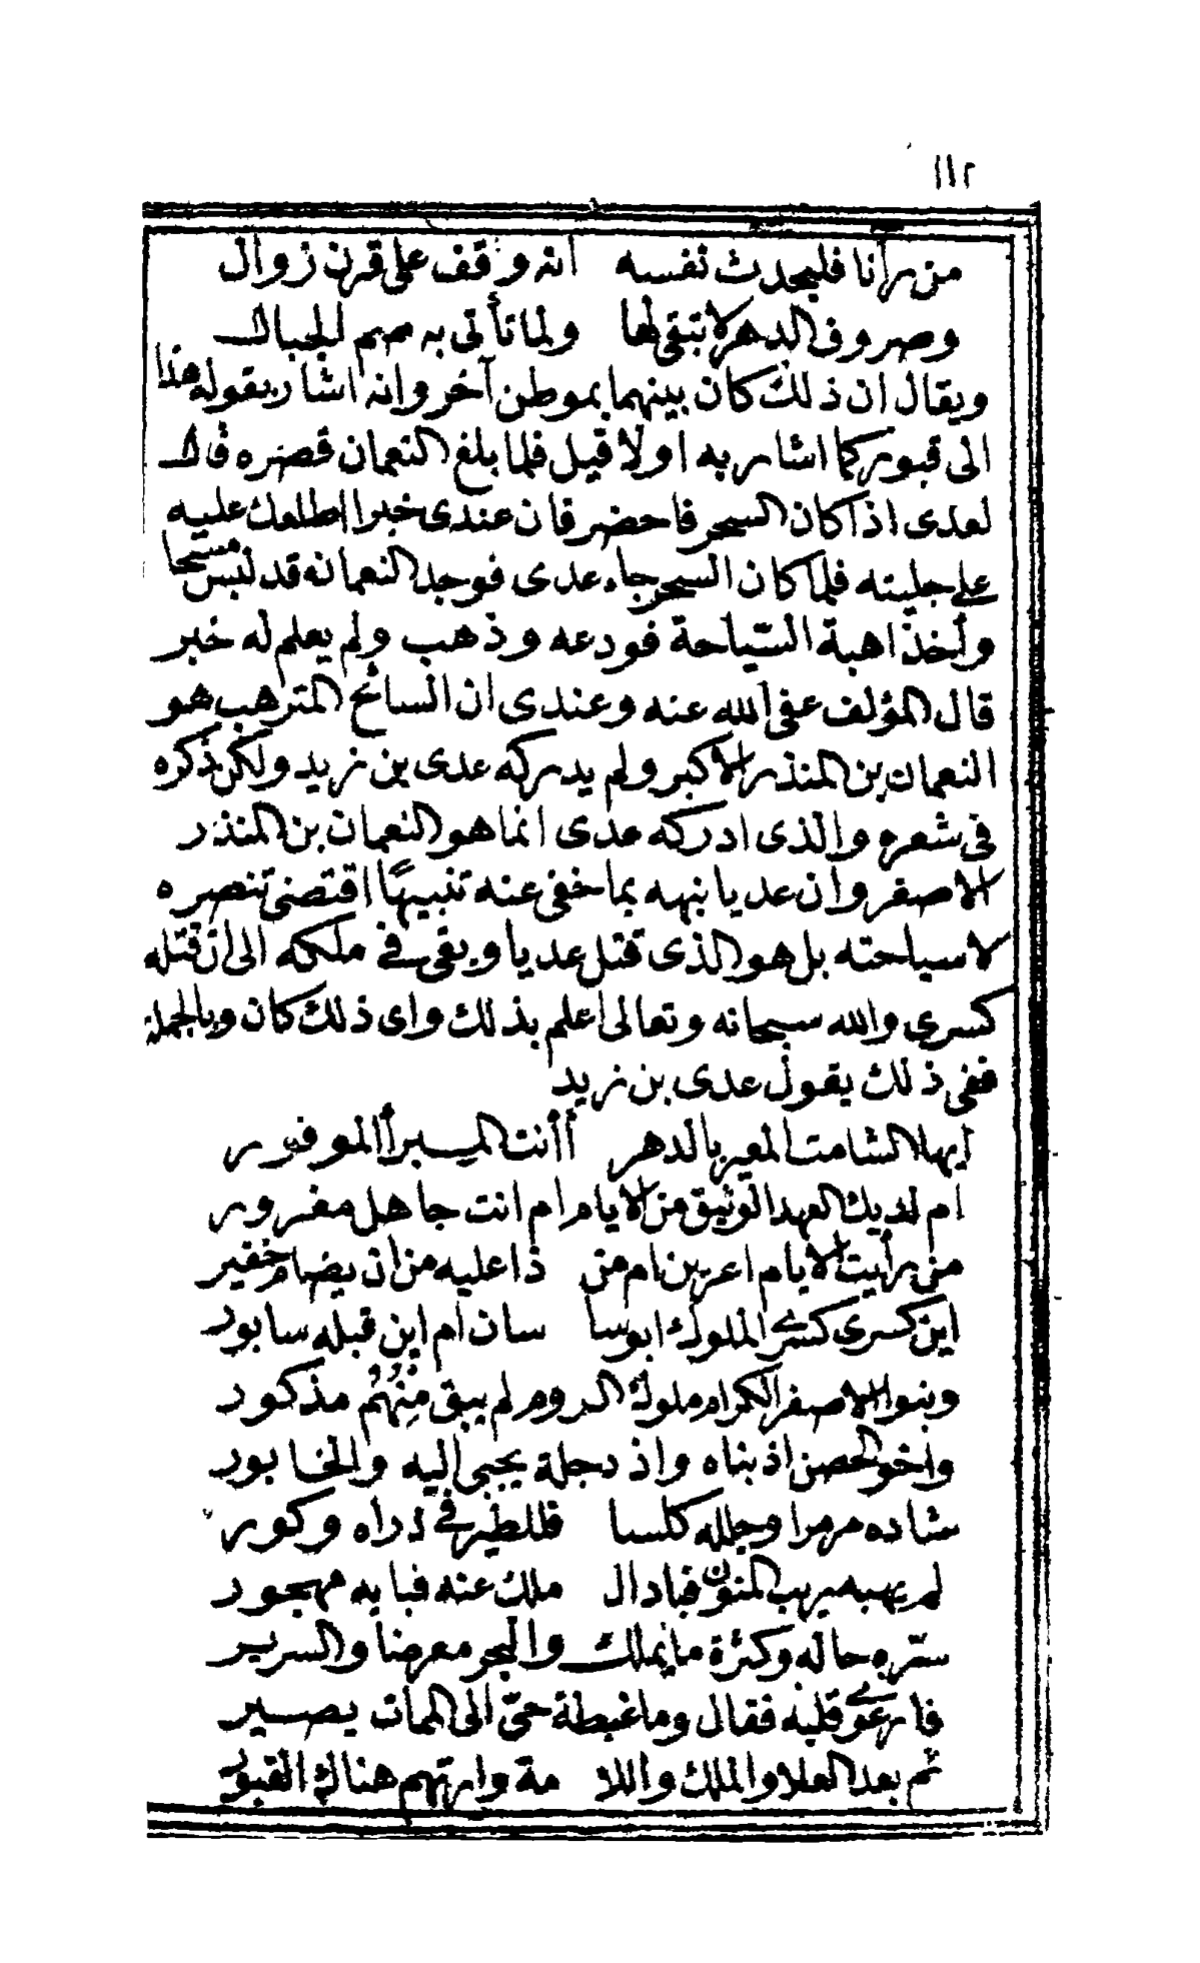 ١١٢
من رأنا فليحدث نفسه انه وقف على قرن زوال
وصروف الدهر لا تبقى لها ولما تأتى به صم الجبال
ويقال ان ذلك كان بينهما بموطن آخر وانه اشار بقوله هذا
الى قبور كما اشار به اولا قيل فلما بلغ النعمان قصره قال
لعدى اذا كان السحر فاحضر فان عندى خبرا اطلعك عليه
على جليته فلما كان السحر جاء عدى فوجد النعمانه قد لبس مسيحا
وأخذ اهبة السّياحة فودعه وذهب ولم يعلم له خبر
قال المؤلف عفى الله عنه وعندى ان السائح المترهب هو
النعمان بن المنذر الاكبر ولم يدركه عدى بن زيد ولكن ذكره
فى شعره والذى ادركه عدى انما هو النعمان بن المنذر
الاصغر وان عديا نبهه بما خفى عنه تنبيهًا اقتضى تنصره
لا سياحته بل هو الذى قتل عديا وبقى فى ملكه الى ان قتله
كسرى والله سبحانه وتعالى اعلم بذلك واى ذلك كان وبالجملة
ففى ذلك يقول عدى بن زيد
ايها الشامت المعير بالدهر أأنت المبرأ الموفور
ام لديك العهد الوثيق من الايام ام انت جاهل مغرور
من رأيت الايام اعزين ام من ذا عليه من ان يضام خفير
اين كسرى كسرى الملوك ابوسا سان ام اين قبله سابور
وبنوا الاصفر الكرام ملوك الروم لم يبق منهم مذكور
واخو الحصن اذ بناه واذ دجلة يجبى اليه والخابور
شاده مرمرا وجلله كلسا فللطير فى ذراه وكور
لم يهبه ريب المنون فباد ال ملك عنه فبابه مهجور
سرّه حاله وكثرة ما يملك والبحر معرضا والسرير
فارعوى قلبه فقال وما غبطة حىّ الى الممات يصير
ثم بعد العلا والملك واللا مة وارتهم هناك القبور